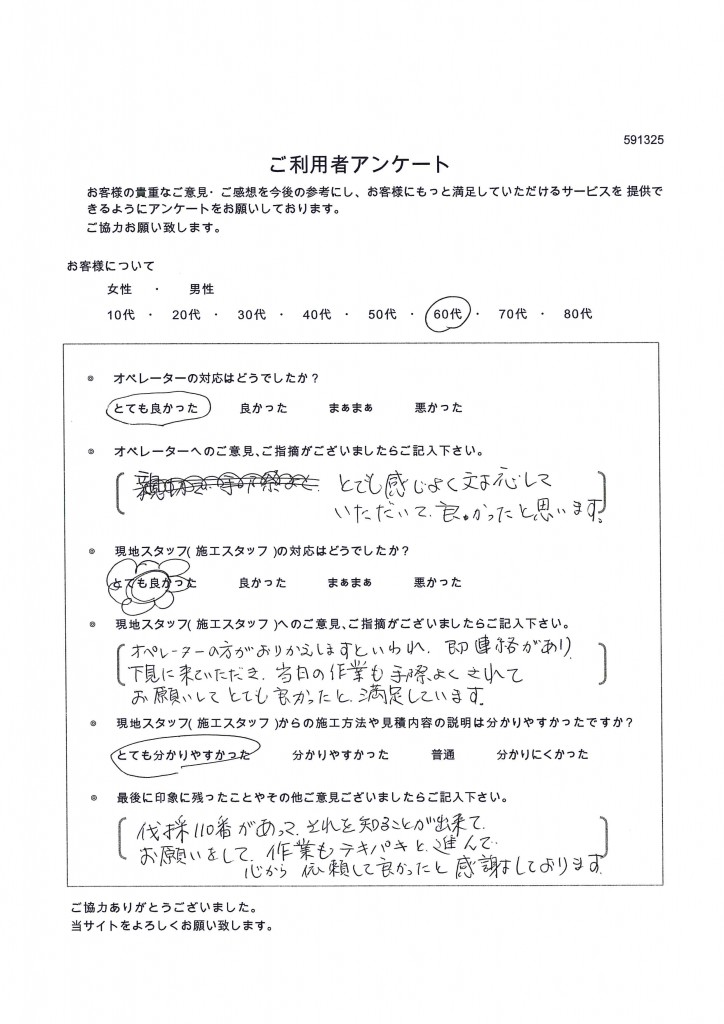 591325
ご利用者アンケート
お客様の貴重なご意見・ご感想を今後の参考にし、お客様にもっと満足していただけるサービスを 提供で
きるようにアンケートをお願いしております。
ご協力お願い致します。
お客様について
女性 ・ 男性
10代 ・ 20代 ・ 30代 ・ 40代 ・ 50代 ・ 60代 ・ 70代 ・ 80代
◎ オペレーターの対応はどうでしたか？
とても良かった 良かった まぁまぁ 悪かった
◎ オペレーターへのご意見、ご指摘がございましたらご記入下さい。
とても感じよく対応して
いただいて、良かったと思います。
◎ 現地スタッフ( 施工スタッフ )の対応はどうでしたか？
とても良かった 良かった まぁまぁ 悪かった
◎ 現地スタッフ( 施工スタッフ )へのご意見、ご指摘がございましたらご記入下さい。
オペレーターの方がおりかえしますといわれ、即連絡があり、
下見に来ていただき、当日の作業も手際よくされて
お願いしてとても良かったと、満足しています。
◎ 現地スタッフ( 施工スタッフ )からの施工方法や見積内容の説明は分かりやすかったですか？
とても分かりやすかった 分かりやすかった 普通 分かりにくかった
◎ 最後に印象に残ったことやその他ご意見ございましたらご記入下さい。
伐採110番があって、それを知ることが出来て、
お願いをして、作業もテキパキと、進んで、
心から 依頼して良かったと感謝しております。
ご協力ありがとうございました。
当サイトをよろしくお願い致します。